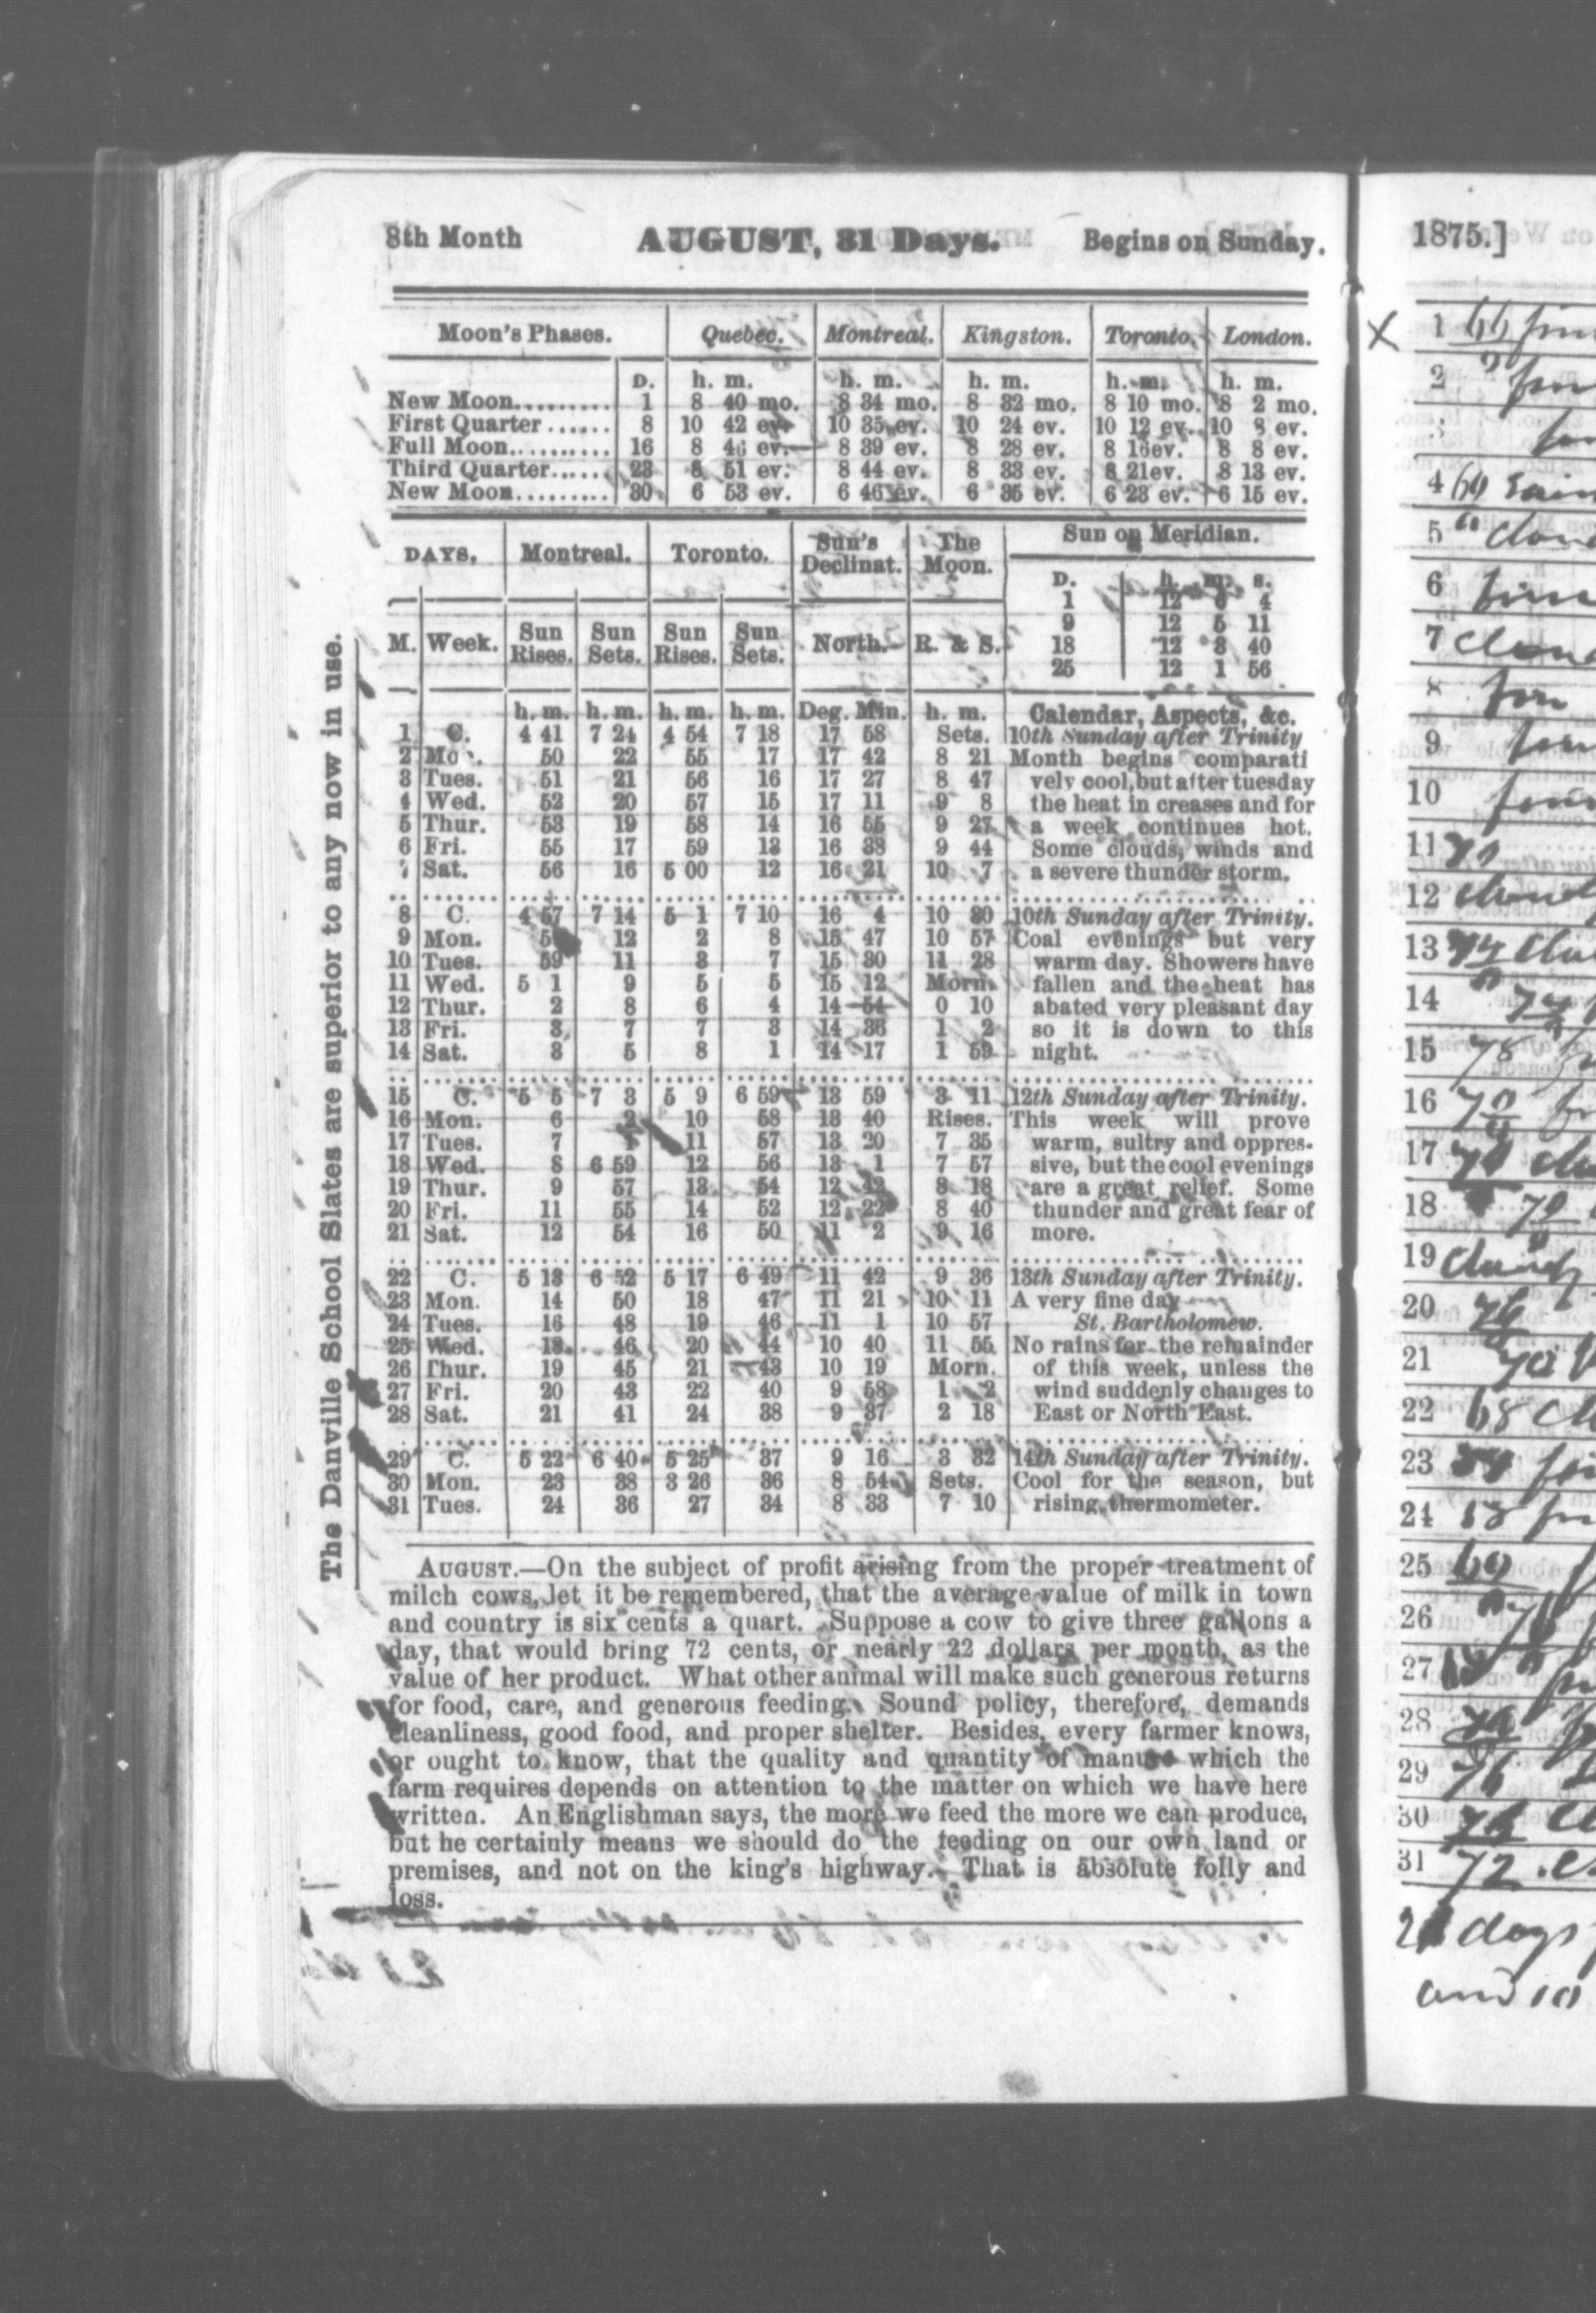 8th Month AUGUST, 31 Days. Begins on Sunday.
Moon's Phases. Quebec. Montreal. Kingston. Toronto. London.
D. h. m. h. m. h. m. h. m. h. m.
New Moon.......... 1 8 40 mo. 8 34 mo. 8 32 mo. 8 10 mo. 8 2 mo.
First Quarter ...... 8 10 42 ev. 10 35 ev. 10 24 ev. 10 12 ev. 10 8 ev.
Full Moon.......... 16 8 46 ev. 8 39 ev. 8 28 ev. 8 16ev. 8 8 ev.
Third Quarter...... 23 8 51 ev. 8 44 ev. 8 33 ev. 8 21ev. 8 13 ev.
New Moon......... 30 6 53 ev. 6 46 ev. 6 35 ev. 6 23 ev. 6 15 ev.
DAYS. Montreal. Toronto. Sun's Declinat. The Moon. Sun on Meridian.
D. h. m. s.
1 12 6 4
9 12 5 11
18 12 3 40
25 12 1 56
M. Week. Sun Rises. Sun Sets. Sun Rises. Sun Sets. North. R. & S.
h. m. h. m. h. m. h. m. Deg. Min. h. m. Calendar, Aspects, &c.
1 C. 4 41 7 24 4 54 7 18 17 58 Sets. 10th Sunday after Trinity
2 Mo . 50 22 55 17 17 42 8 21 Month begins comparati
3 Tues. 51 21 56 16 17 27 8 47 vely cool, but after tuesday
4 Wed. 52 20 57 15 17 11 9 8 the heat in creases and for
5 Thur. 53 19 58 14 16 55 9 27 a week continues hot.
6 Fri. 55 17 59 13 16 38 9 44 Some clouds, winds and
7 Sat. 56 16 5 00 12 16 21 10 7 a severe thunder storm.
8 C. 4 57 7 14 5 1 7 10 16 4 10 30 10th Sunday after Trinity.
9 Mon. 12 2 8 15 47 10 57 Coal evenings but very
10 Tues. 59 11 3 7 15 30 11 28 warm day. Showers have
11 Wed. 5 1 9 5 5 15 12 Morn. fallen and the heat has
12 Thur. 2 8 6 4 14 54 0 10 abated very pleasant day
13 Fri. 3 7 7 3 14 36 1 2 so it is down to this
14 Sat. 3 5 8 1 14 17 1 59 night.
15 C. 5 5 7 3 5 9 6 59 13 59 3 11 12th Sunday after Trinity.
16 Mon. 6 2 10 58 13 40 Rises. This week will prove
17 Tues. 7 11 57 13 20 7 35 warm, sultry and oppres-
18 Wed. 8 6 59 12 56 13 1 7 57 sive, but the cool evenings
19 Thur. 9 57 13 54 12 42 8 18 are a great relief. Some
20 Fri. 11 55 14 52 12 22 8 40 thunder and great fear of
21 Sat. 12 54 16 50 11 2 9 16 more.
22 C. 5 13 6 52 5 17 6 49 11 42 9 36 13th Sunday after Trinity.
23 Mon. 14 50 18 47 11 21 10 11 A very fine day
24 Tues. 16 48 19 46 11 1 10 57 St. Bartholomew.
25 Wed. 18 46 20 44 10 40 11 55 No rains for the remainder
26 Thur. 19 45 21 43 10 19 Morn. of this week, unless the
27 Fri. 20 43 22 40 9 58 1 2 wind suddenly changes to
28 Sat. 21 41 24 38 9 37 2 18 East or North East.
29 C. 5 22 6 40 5 25 37 9 16 3 32 14th Sunday after Trinity.
30 Mon. 23 38 3 26 36 8 54 Sets. Cool for the season, but
31 Tues. 24 36 27 34 8 33 7 10 rising thermometer.
AUGUST.—On the subject of profit arising from the proper treatment of
milch cows, let it be remembered, that the average value of milk in town
and country is six cents a quart. Suppose a cow to give three gallons a
day, that would bring 72 cents, or nearly 22 dollars per month, as the
value of her product. What other animal will make such generous returns
for food, care, and generous feeding. Sound policy, therefore, demands
cleanliness, good food, and proper shelter. Besides, every farmer knows,
or ought to know, that the quality and quantity of manure which the
farm requires depends on attention to the matter on which we have here
written. An Englishman says, the more we feed the more we can produce,
but he certainly means we should do the feeding on our own land or
premises, and not on the king's highway. That is absolute folly and
loss.
The Danville School Slates are superior to any now in use.
1875.]
1 66
2
4 60
5
6
7
8
9
10
11
12
13 74
14
15 78
16 70
17
18 70
19
20 76
21 70
22 68
23
24
25 60
26 76
27
28
29 76
30 76
31 72
days
and 10